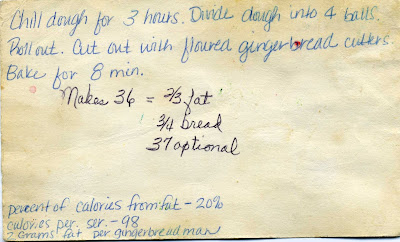 Chill dough for 3 hours. Divide dough into 4 balls.
Roll out. Cut out with floured gingerbread cutters.
Bake for 8 min.
Makes 36 = 2/3 fat
3/4 bread
37 optional
percent of calories from fat - 20%
calories per. ser. - 98
2 grams fat per gingerbread man